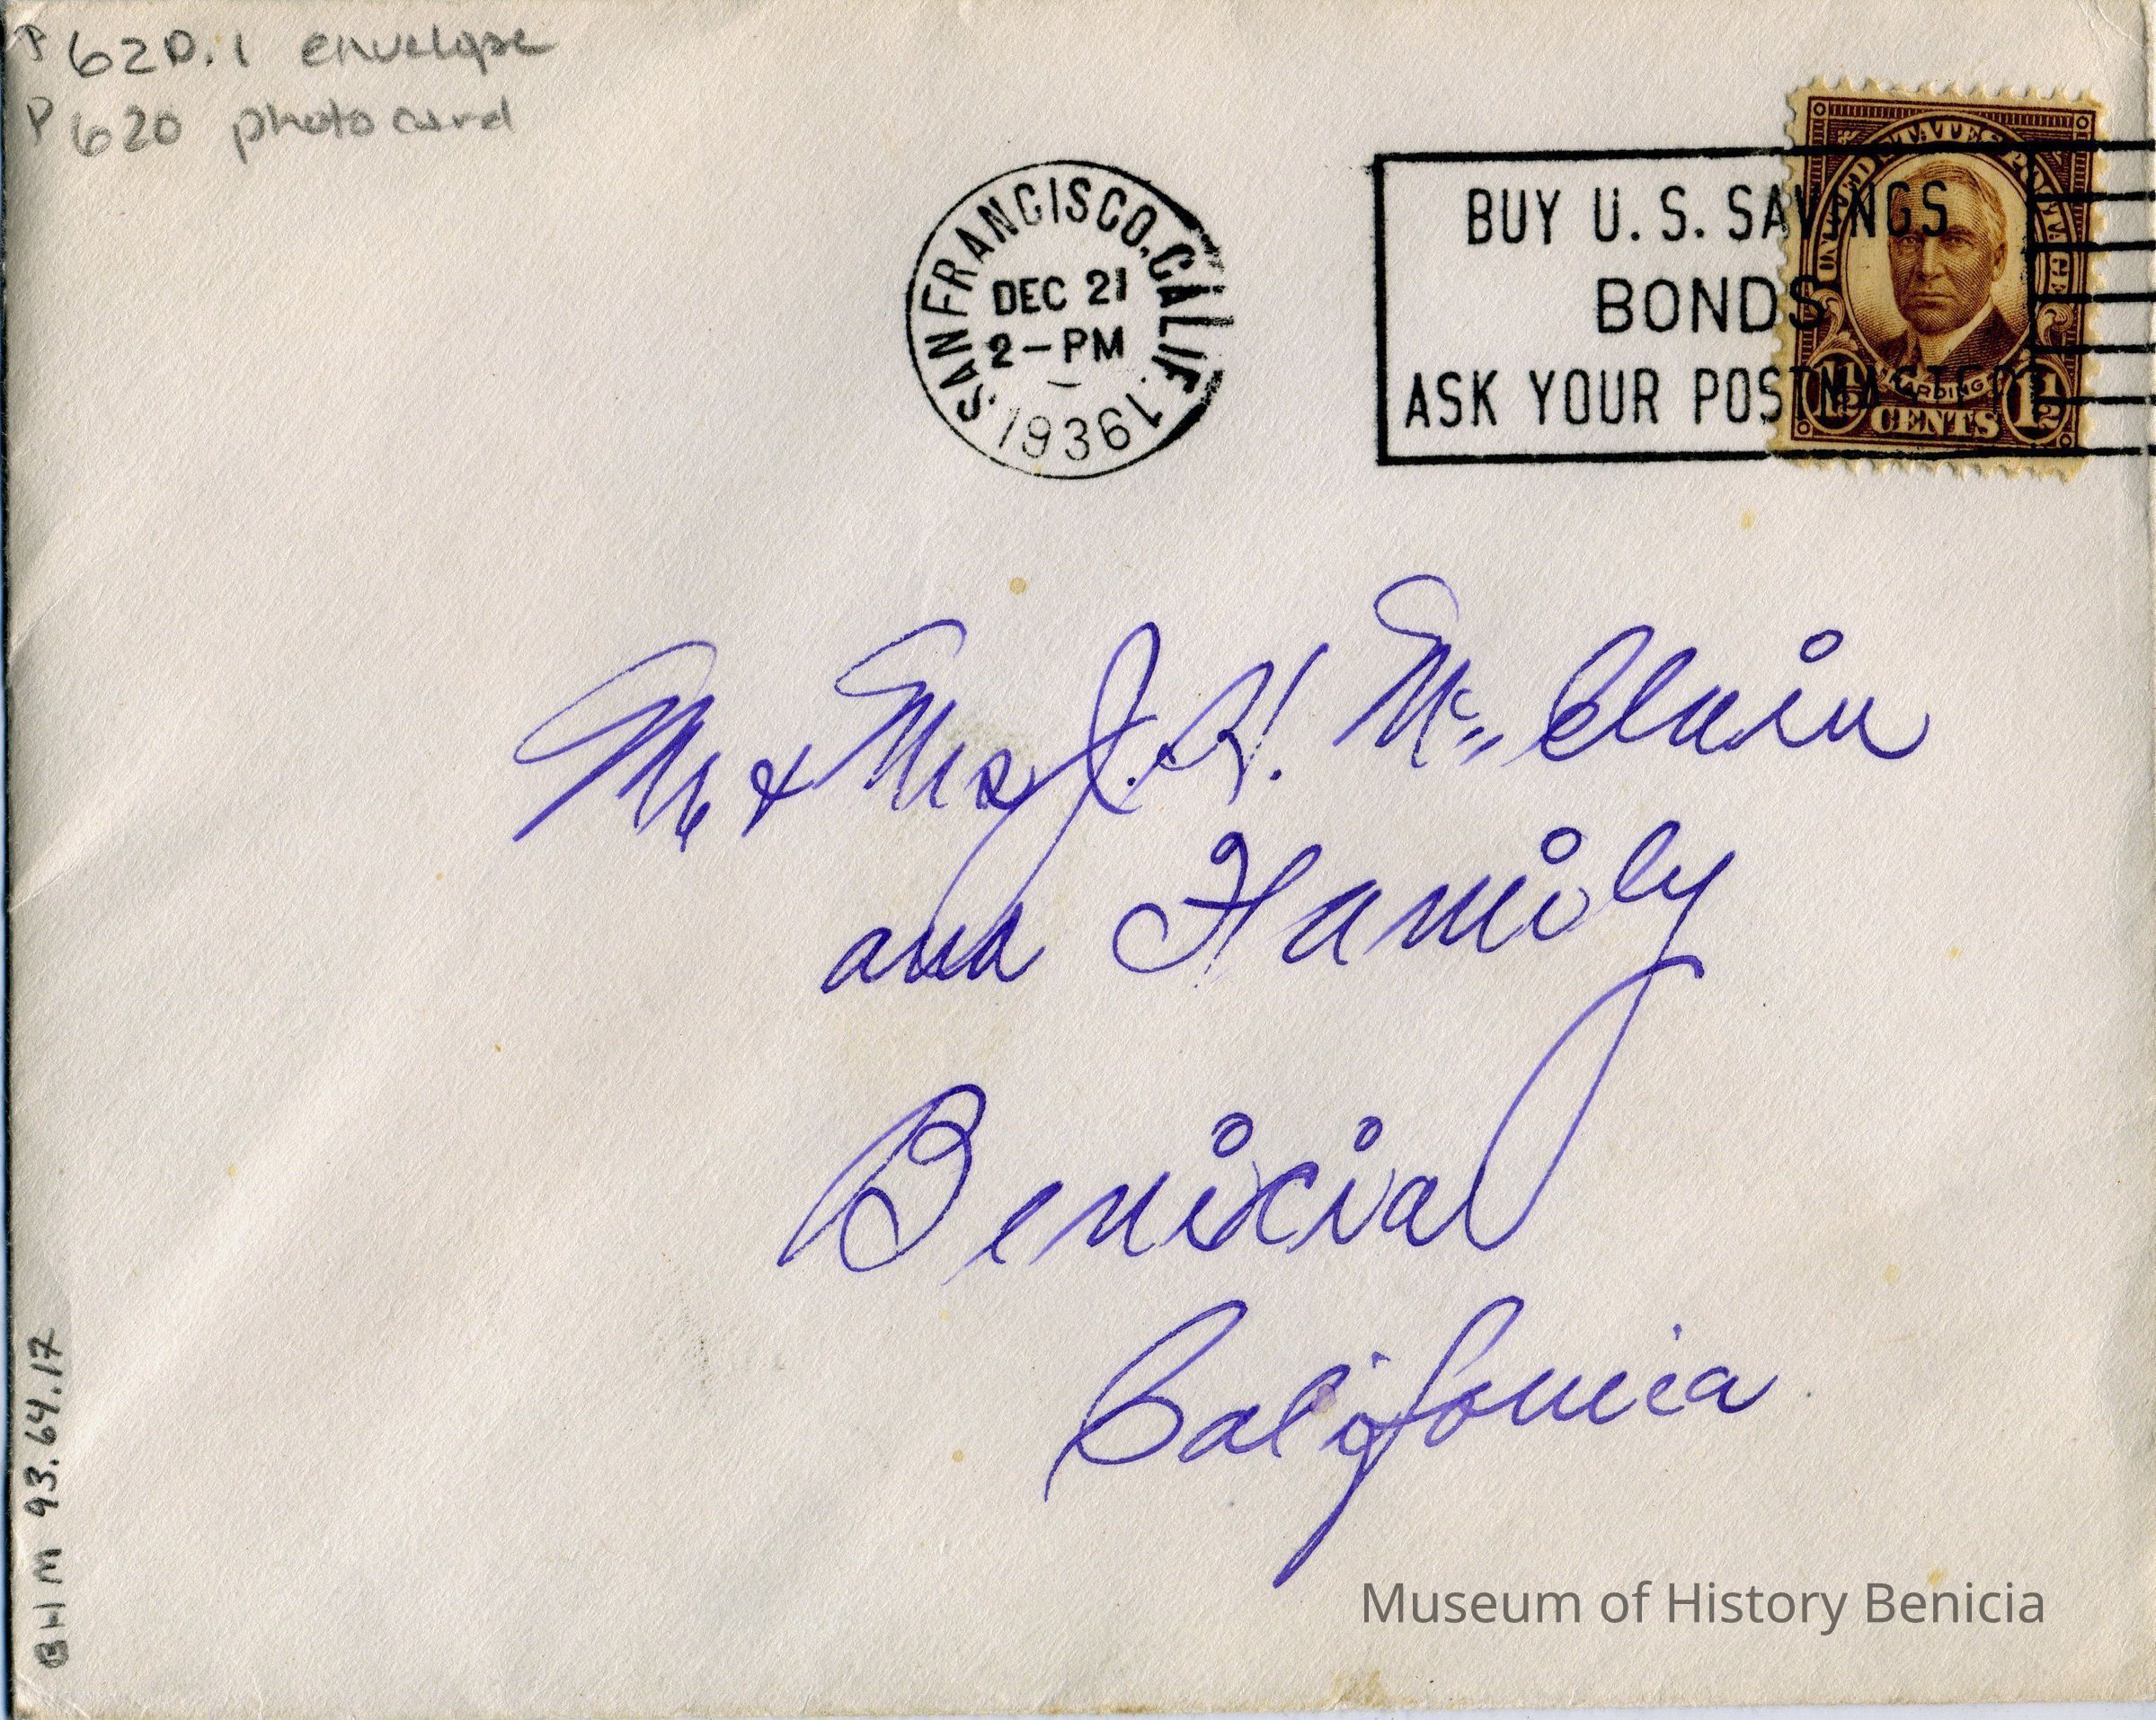 P 620.1 envelope
P 620 photo card
SAN FRANCISCO, CALIF. 1
DEC 21
2-PM
1936
BUY U.S. SAVINGS
BONDS
ASK YOUR POSTMASTER
UNITED STATES POSTAGE
HARDING
1½ CENTS 1½
Mr & Mrs J. H. Mc Clain
and Family
Benicia
California
BHM 93.64.17
Museum of History Benicia